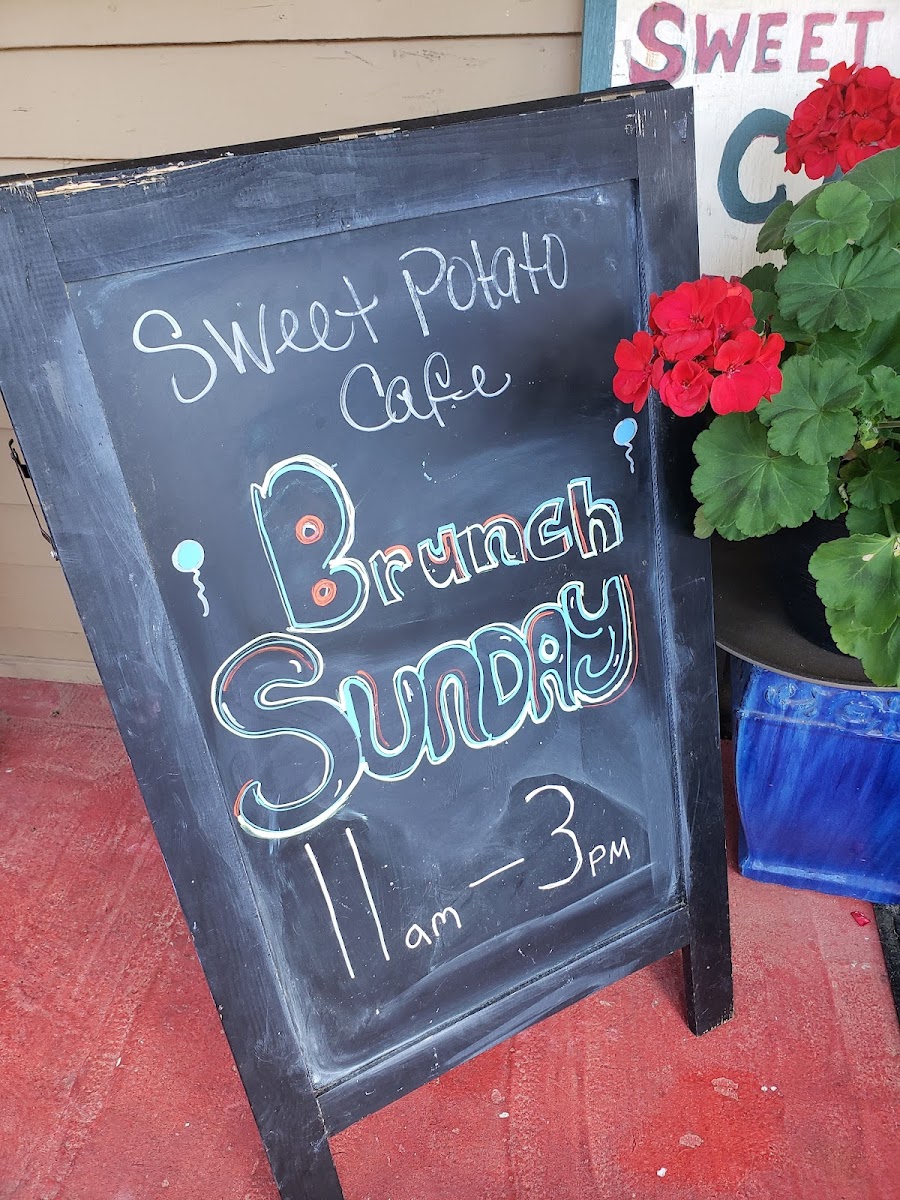 SWEET
C
Sweet Potato
Cafe
Brunch
SUNDAY
11am - 3PM